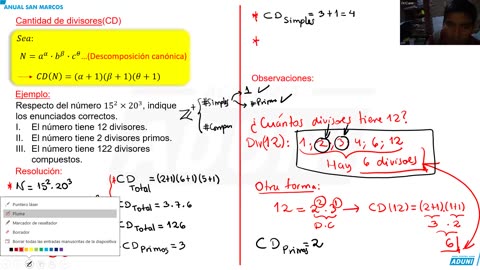 ANUAL SAN MARCOS
Cantidad de divisores(CD)
Sea:
N = a^α · b^β · c^θ ...(Descomposición canónica)
→ CD(N) = (α + 1)(β + 1)(θ + 1)
Ejemplo:
Respecto del número 15² × 20³, indique
los enunciados correctos.
I. El número tiene 12 divisores.
II. El número tiene 2 divisores primos.
III. El número tiene 122 divisores
compuestos.
Resolución:
* N = 15² · 20³
Puntero láser
Pluma
Marcador de resaltador
Borrador
Borrar todas las entradas manuscritas de la diapositiva
Z⁺
#Simples
1 ✓
#Primos ✓
CD Total = (2+1)(6+1)(5+1)
CD Total = 3 . 7 . 6
CD Total = 126
CD Primos = 3
* CD Simples = 3+1 = 4
*
Observaciones:
¿Cuántos divisores tiene 12?
Div(12): 1 ; 2 ; 3 ; 4 ; 6 ; 12
Hay 6 divisores
Otra forma:
12 = 2² · 3¹ → CD(12) = (2+1)(1+1)
D.C
3 . 2
6
CD Primos = 2
ADUNI